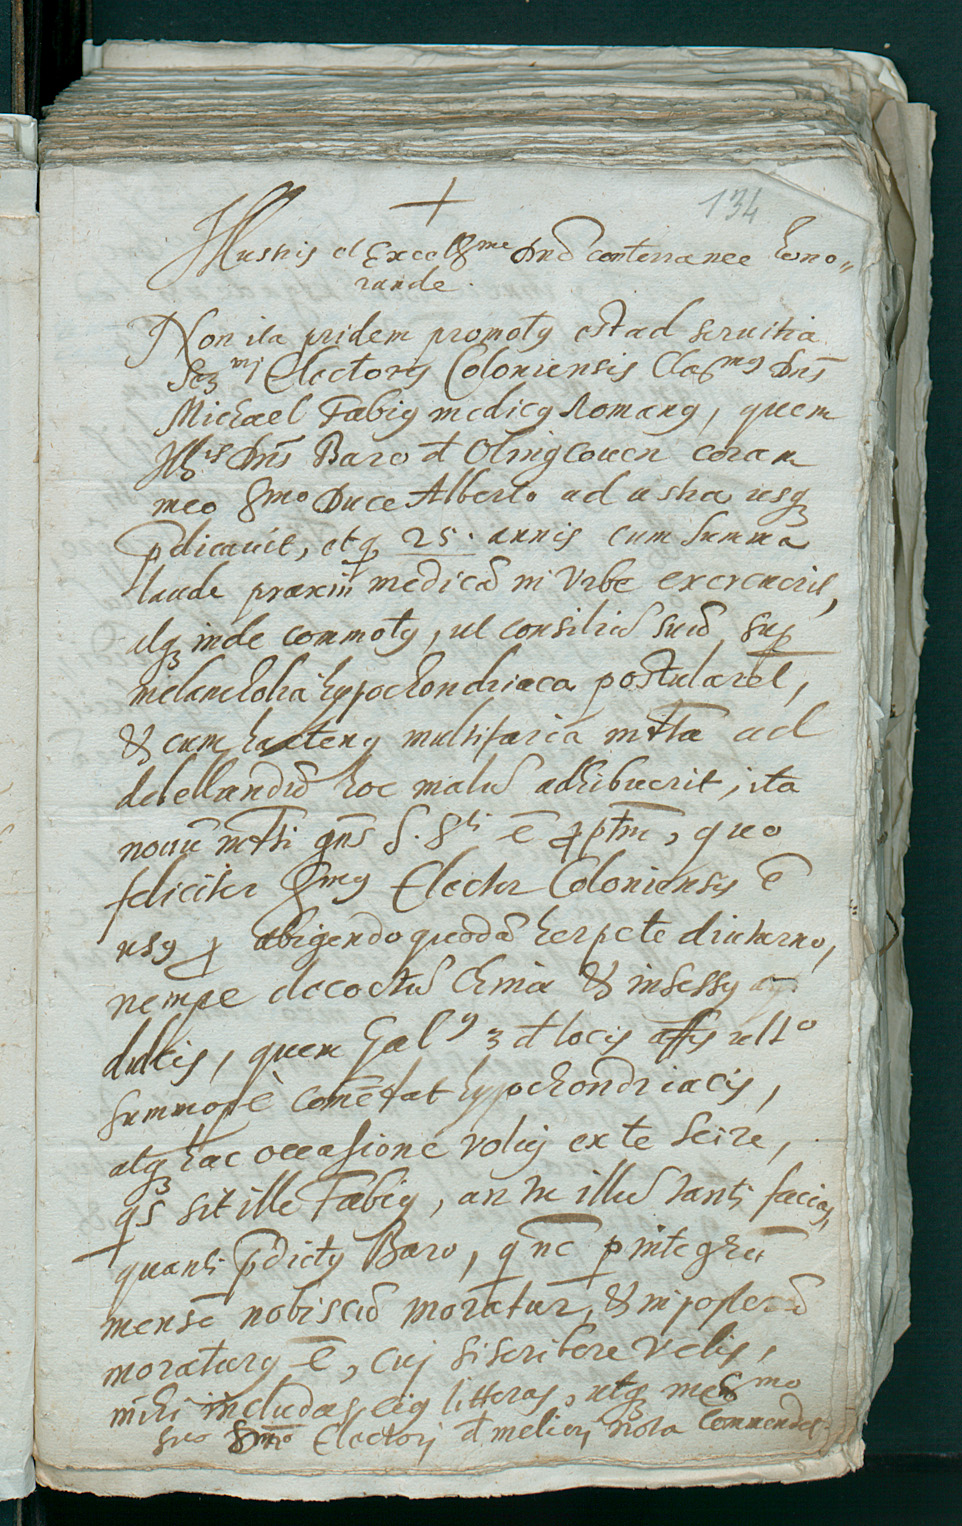 134
Illustris et Excell̃me Dñe conterranee hono„
rande.
Non ita pridem promotꝰ est ad servitia
Serᵐⁱ Electoris Coloniensis Clarᵐꝰ Dñs
Michael Fabiꝰ medicꝰ Romanꝰ, quem
Illᵐⁱˢ Dñs Baro đ Olingcoven coram
meo Sermo Duce Alberto ad astra usqꝫ
p̃dicavit, et qꝫ 25. annis cum summa
laude praxin medicã in Urbe exercuerit,
atqꝫ inde commotꝰ, ut consiliũ suũ suꝑ
melancholia hypochondriaca postularet,
& cum hactenꝰ multifaria mt̃ta ad
debellandũ hoc malũ adhibuerit, ita
novũ
feliciter Sermꝰ Elector Coloniensis ẽ
usꝰ ꝓ abigendo quodã herpete diuturno,
nempe decoctũ Chinæ & insessꝰ aq̃
dulcis, quem Galꝰ 3 đ locis affis ultº
summopẽ com̃edat hypochondriacis,
atqꝫ hac occasione volui ex te scire,
qs̃ sit ille Fabiꝰ, an tu illũ tanti facias,
quanti p̃dictꝰ Baro, q̃ nc̃ ꝑ integrũ
mensẽ nobiscũ moratur, & in posterũ
moraturꝰ ẽ, cui si scribere velis,
mihi includas eiꝰ litteras, utqꝫ me Sermo
suo Sermo Electori đ meliori nota commendet